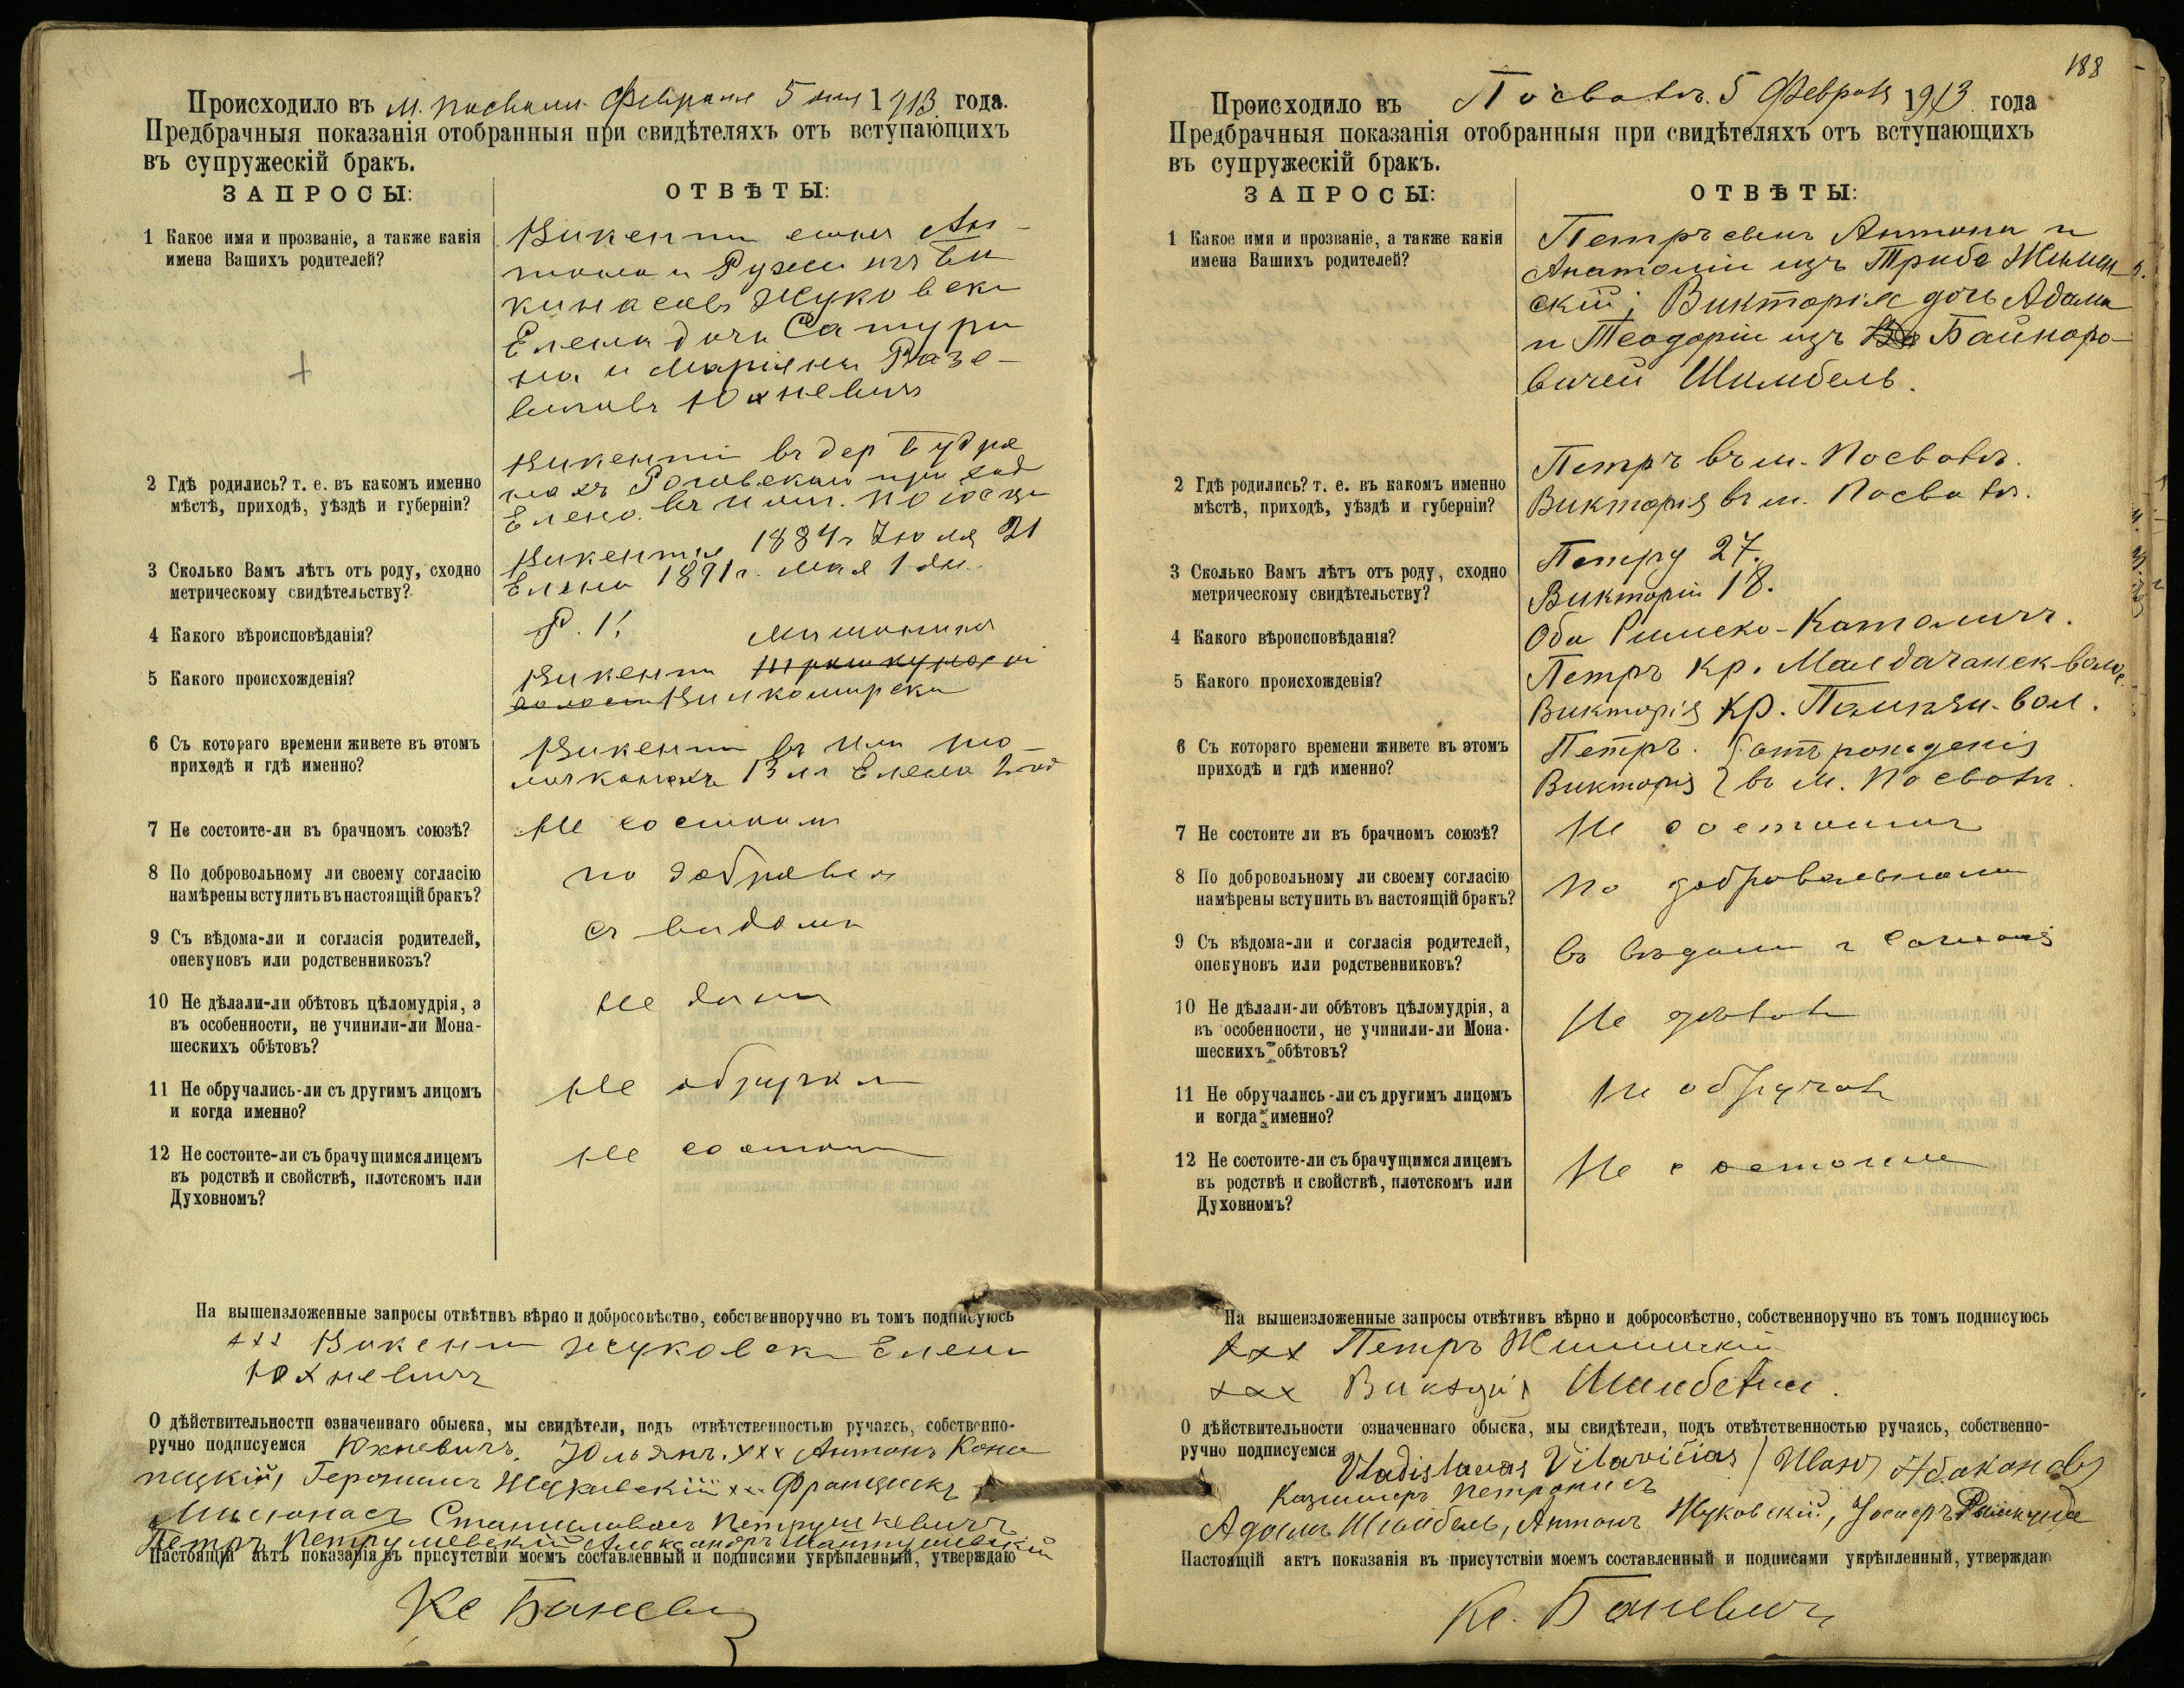 Происходило въ м. Посволи Февраля 5 дня 1913 года.
Предбрачныя показанія отобранныя при свидѣтеляхъ отъ вступающихъ
въ супружескій бракъ.
ЗАПРОСЫ:
ОТВѢТЫ:
1 Какое имя и прозваніе, а также какія
имена Вашихъ родителей?
Викенти сынъ Ан-
тона и Ружи изъ
Жуковски
Елена дочь Сатури
на и Маріяны
Юхневичъ
2 Гдѣ родились? т. е. въ какомъ именно
мѣстѣ, приходѣ, уѣздѣ и губерніи?
Викентій въ дер
Роговскаго приход
Елена въ
3 Сколько Вамъ лѣтъ отъ роду, сходно
метрическому свидѣтельству?
Викентія 1884 г Іюля 21
Елена 1891 г. мая 1 дн.
4 Какого вѣроисповѣданія?
Р. К.
5 Какого происхожденія?
Викенти
Вилкомирски
6 Съ котораго времени живете въ этомъ
приходѣ и гдѣ именно?
Викенти въ им
13 лѣ Елена 2 год
7 Не состоите-ли въ брачномъ союзѣ?
Не состоимъ
8 По добровольному ли своему согласію
намѣрены вступить въ настоящій бракъ?
по добровол
9 Съ вѣдома-ли и согласія родителей,
опекуновъ или родственниковъ?
съ видома
10 Не дѣлали-ли обѣтовъ цѣломудрія, а
въ особенности, не учинили-ли Мона-
шескихъ обѣтовъ?
Не
11 Не обручались-ли съ другимъ лицомъ
и когда именно?
Не обручал
12 Не состоите-ли съ брачущимся лицемъ
въ родствѣ и свойствѣ, плотскомъ или
Духовномъ?
Не состоим
На вышеизложенные запросы отвѣтивъ вѣрно и добросовѣстно, собственноручно въ томъ подписуюсь
xxx Викенти Жуковски Елена
Юхневичъ
О дѣйствительности означеннаго обыска, мы свидѣтели, подъ отвѣтственностью ручаясь, собственно-
ручно подписуемся Юхневичъ Юльянъ. xxx Антонъ Коно
пацкій, Геронимъ Жуковскій xx Францискъ
Станиславъ Петрушкевичъ
Петръ Александръ
Настоящій актъ показанія въ присутствіи моемъ составленный и подписями укрѣпленный, утверждаю
Кс Баневич
188
Происходило въ Посволь 5 Февраля 1913 года
Предбрачныя показанія отобранныя при свидѣтеляхъ отъ вступающихъ
въ супружескій бракъ.
ЗАПРОСЫ:
ОТВѢТЫ:
1 Какое имя и прозваніе, а также какія
имена Вашихъ родителей?
Петръ сынъ Антона и
Анатоліи изъ
скій; Викторія дочь Адама
и Теодоріи изъ Байноро-
вичей Шимбель.
2 Гдѣ родились? т. е. въ какомъ именно
мѣстѣ, приходѣ, уѣздѣ и губерніи?
Петръ въ м. Посволь.
Викторія въ м. Посволь.
3 Сколько Вамъ лѣтъ отъ роду, сходно
метрическому свидѣтельству?
Петру 27.
Викторіи 18.
4 Какого вѣроисповѣданія?
Оба Римско-Католич.
5 Какого происхожденія?
Петръ кр. волос.
Викторія кр. вол.
6 Съ котораго времени живете въ этомъ
приходѣ и гдѣ именно?
Петръ. отъ рожденія
Викторія въ м. Посволь.
7 Не состоите ли въ брачномъ союзѣ?
Не состоимъ
8 По добровольному ли своему согласію
намѣрены вступить въ настоящій бракъ?
По добровольному
9 Съ вѣдома-ли и согласія родителей,
опекуновъ или родственниковъ?
Съ вѣдома и согласія
10 Не дѣлали-ли обѣтовъ цѣломудрія, а
въ особенности, не учинили-ли Мона-
шескихъ обѣтовъ?
Не дѣлали
11 Не обручались-ли съ другимъ лицомъ
и когда именно?
Не обручал
12 Не состоите-ли съ брачущимся лицемъ
въ родствѣ и свойствѣ, плотскомъ или
Духовномъ?
Не состоимъ
На вышеизложенные запросы отвѣтивъ вѣрно и добросовѣстно, собственноручно въ томъ подписуюсь
xxx Петръ
xxx Викторія
О дѣйствительности означеннаго обыска, мы свидѣтели, подъ отвѣтственностью ручаясь, собственно-
ручно подписуемся Vladislavas Vitavičias / Иванъ Абакановъ
Казимеръ Петронисъ
Адамъ Шимбель, Антонъ Жуковскій, Іосиеръ
Настоящій актъ показанія въ присутствіи моемъ составленный и подписями укрѣпленный, утверждаю
Кс. Баневичъ